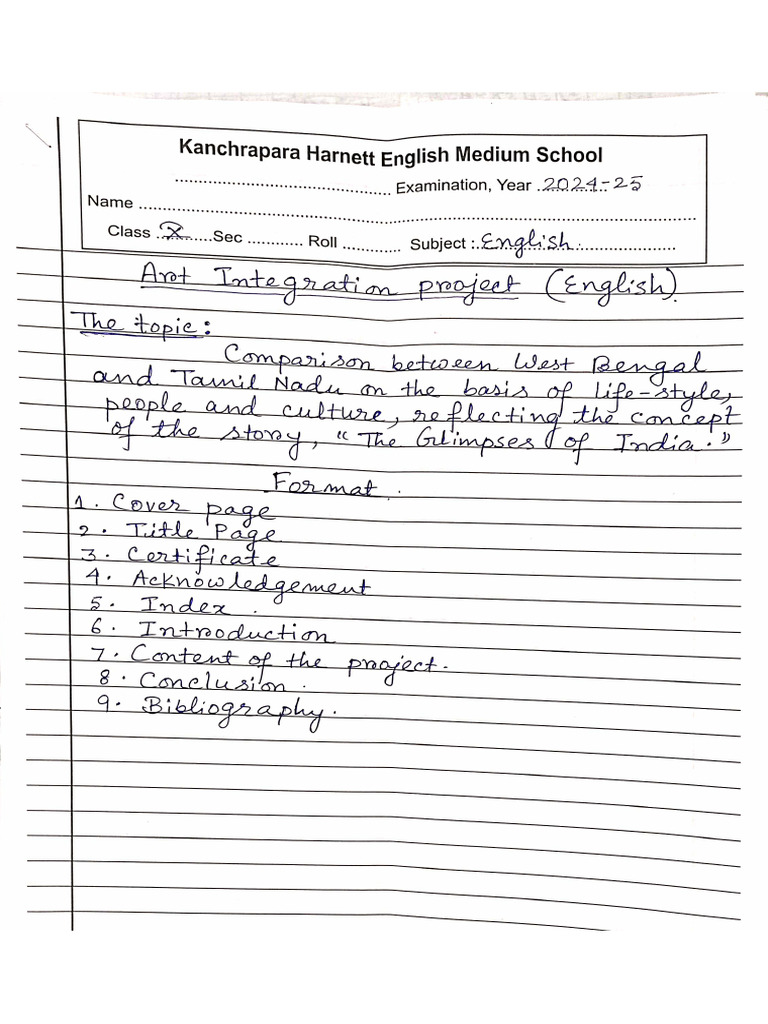 Kanchrapara Harnett English Medium School
........................................ Examination, Year .2024-25
Name ..........................................................................................................
Class ..X......Sec ........... Roll ........... Subject :.English......................
Art Integration project (English).
The topic:
Comparison between West Bengal
and Tamil Nadu on the basis of life-style,
people and culture, reflecting the concept
of the story, “The Glimpses of India.”
Format.
1. Cover page
2. Title Page
3. Certificate
4. Acknowledgement
5. Index.
6. Introduction
7. Content of the project.
8. Conclusion.
9. Bibliography.